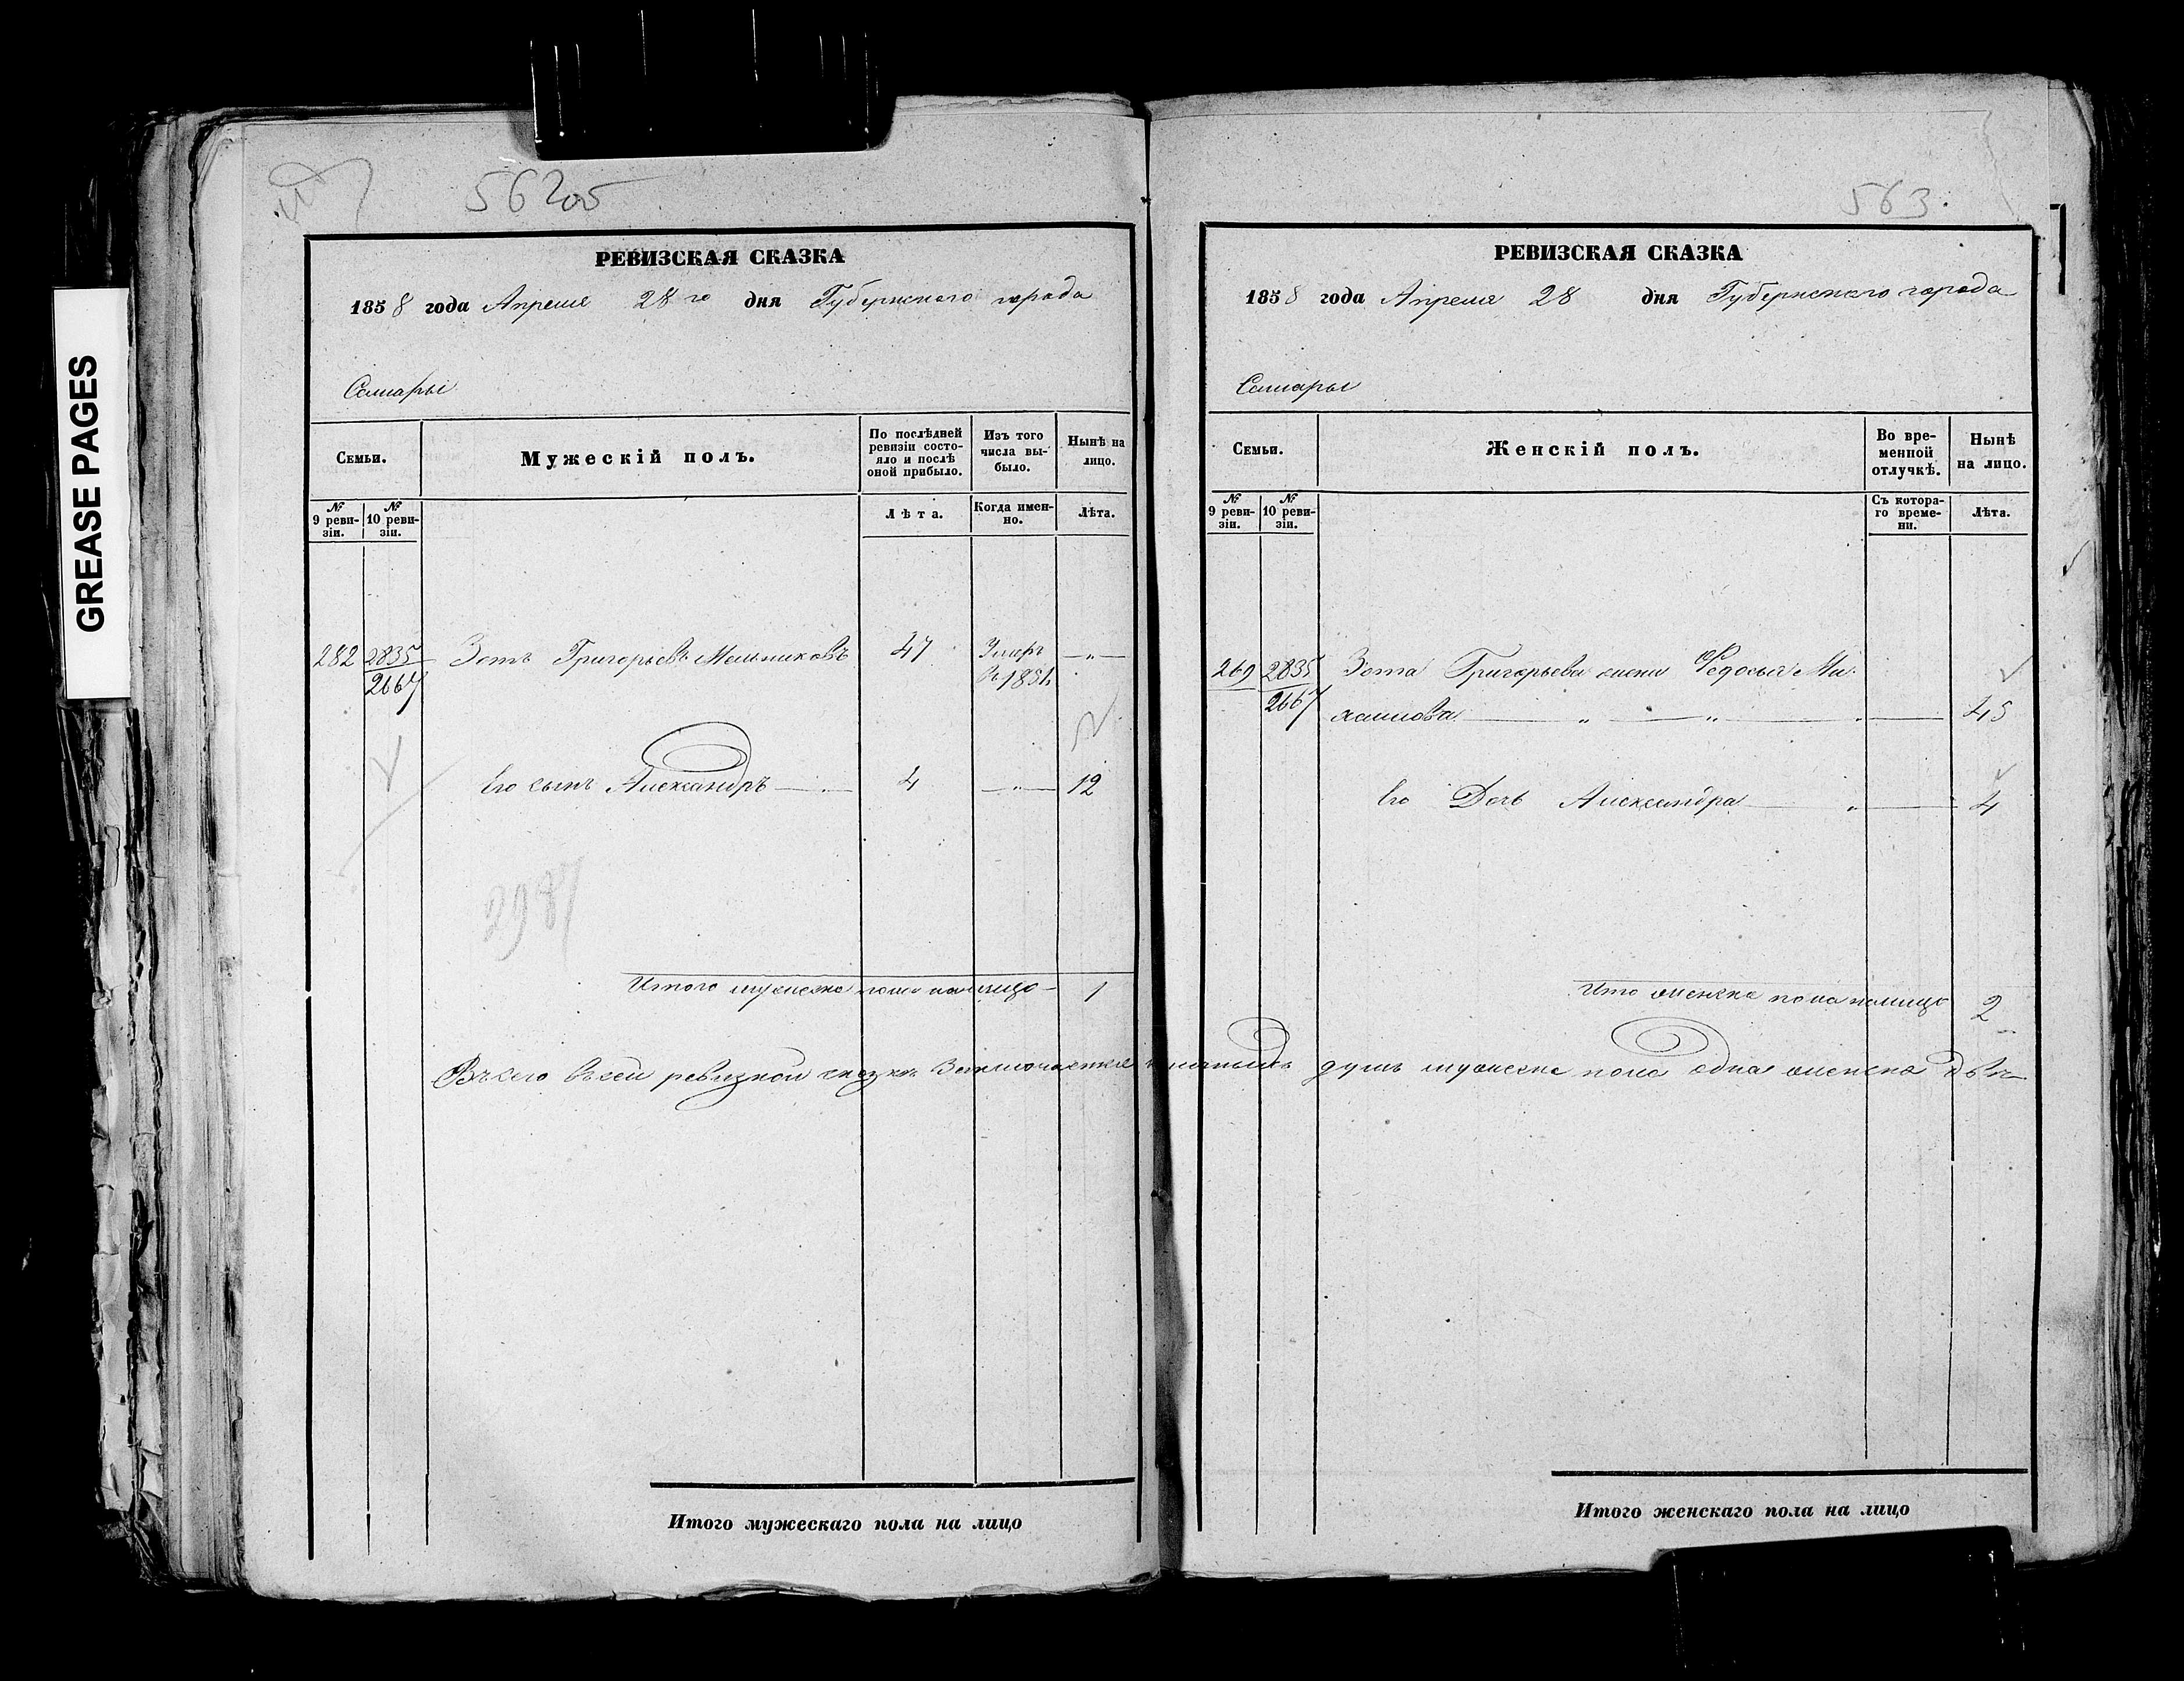 GREASE PAGES
562об
РЕВИЗСКАЯ СКАЗКА
1858 года Апреля 28го дня Губернского города
Самары
Семьи.
Мужескій полъ.
По послѣдней ревизіи состояло и послѣ оной прибыло.
Изъ того числа выбыло.
Нынѣ на лицо.
№ 9 ревизіи.
№ 10 ревизіи.
Лѣта.
Когда именно.
Лѣта.
282 2835 Зотъ Григорьевъ Мельниковъ 47 Умеръ —„—
2667 въ 1854
Его сынъ Александръ — 4 —„— 12
2987
Итого мужеска пола налицо - 1
563.
РЕВИЗСКАЯ СКАЗКА
1858 года Апреля 28 дня Губернского города
Самары
Семьи.
Женскій полъ.
Во временной отлучкѣ.
Нынѣ на лицо.
№ 9 ревизіи.
№ 10 ревизіи.
Съ котораго времени.
Лѣта.
269 2835 Зота Григорьева жена Федосья Ми
2667 хаилова — „ — „ — 45
Его Дочь Александра — „ — 4
Итого женска пола налицо 2
Въсего въсей ревизкой сказкѣ Заключается душъ мужеска пола одна женска двѣ
Итого мужескаго пола на лицо
Итого женскаго пола на лицо